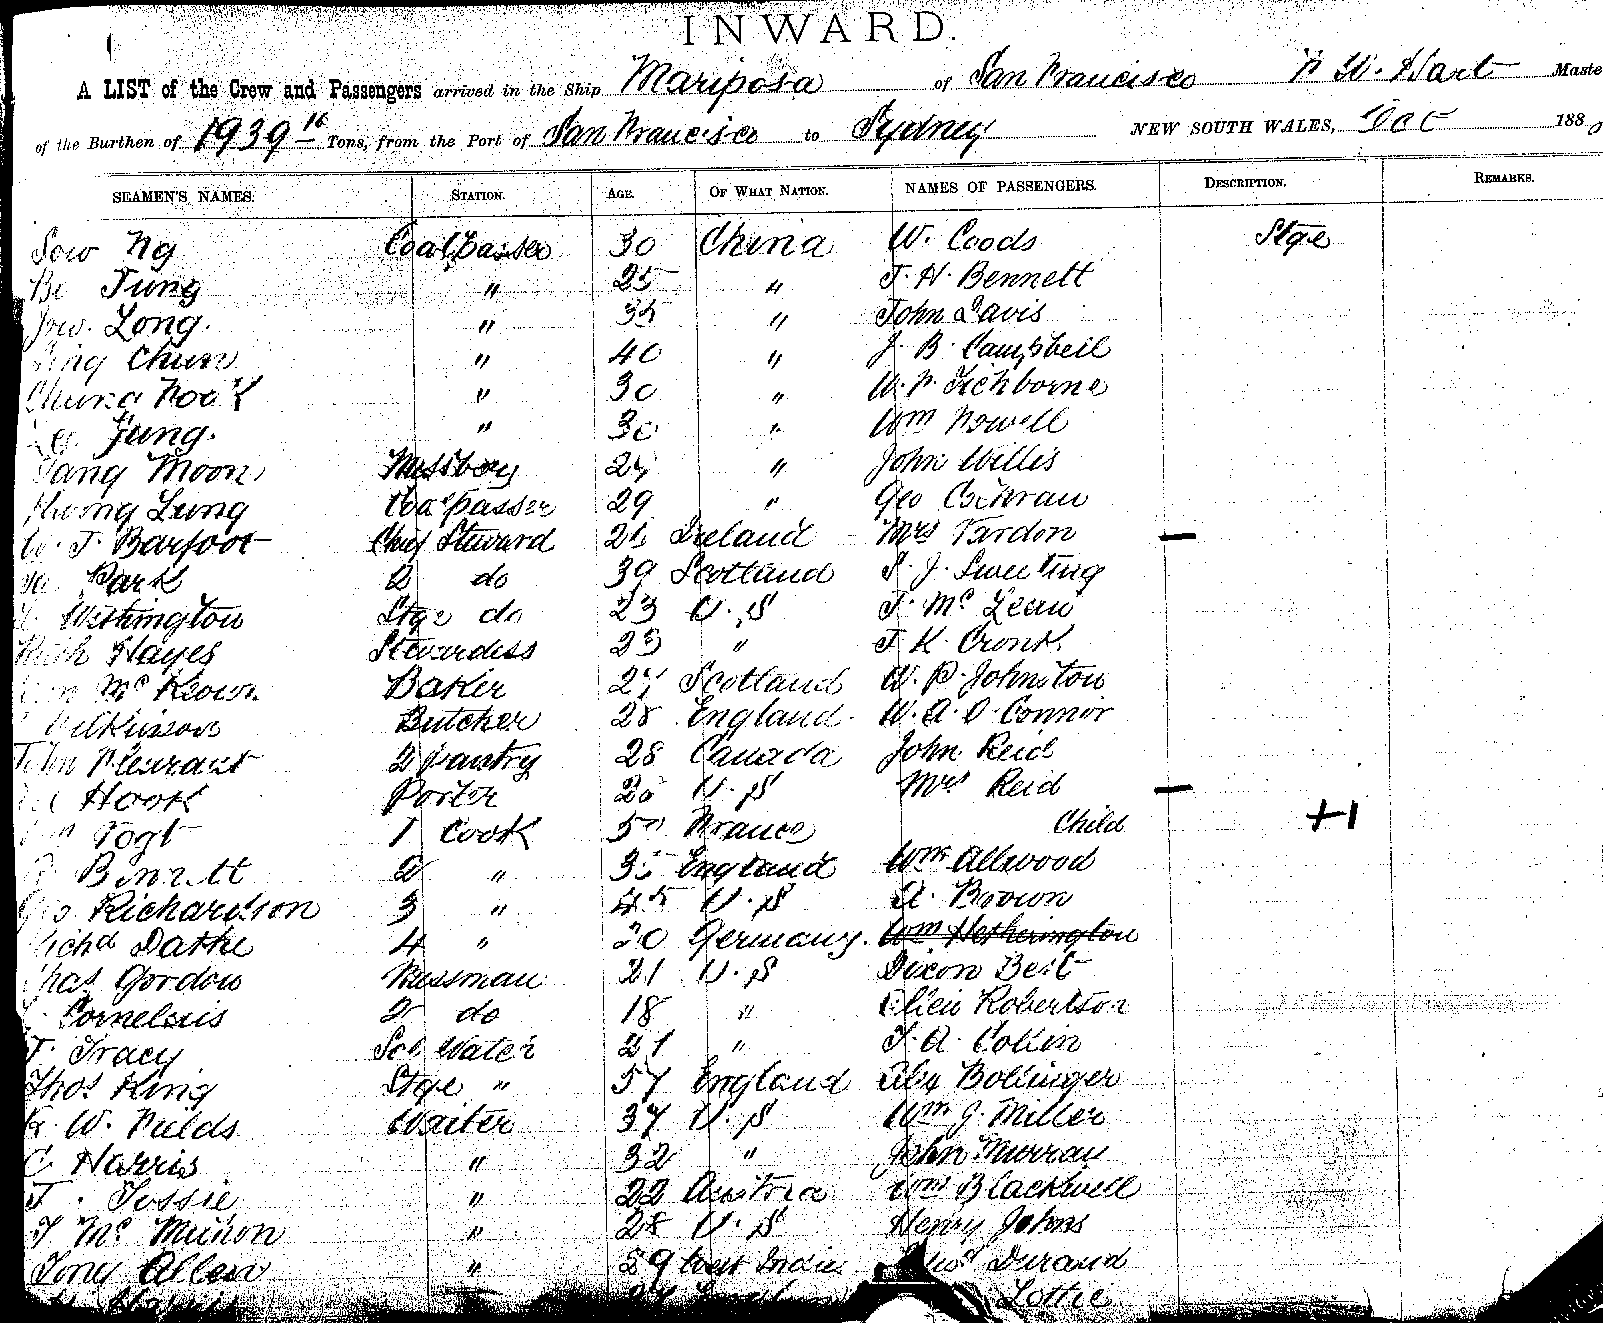 INWARD.
A LIST of the Crew and Passengers arrived in the Ship Mariposa of San Francisco H. W. Hart Maste
of the Burthen of 1939 16 Tons, from the Port of San Francisco to Sydney NEW SOUTH WALES, Dec 188
SEAMEN'S NAMES. STATION. AGE. OF WHAT NATION. NAMES OF PASSENGERS. DESCRIPTION. REMARKS.
Sow Ng Coal Passer 30 China W. Coods Stge
Be Tung " 25 " T. H. Bennett
Jow. Long. " 35 " John Davis
Chun " 40 " J. B. Campbell
Chung " 30 " W. F. Tichborne
Jung. " 30 " Wm Nowell
Moon Messboy " John Willis
Lung Coal passer 29 " Geo Cochran
W. J. Barfoot Chief Steward Ireland Mrs Tardon
Park 2 do 39 Scotland S. J. Sweeting
Withington Stge do 23 U. S T. Mc Lean
Hayes Stewardess 23 " T K. Cronk
Mc Keown Baker 27 Scotland W. P. Johnston
Wilkinson Butcher 28 England. W. A. O. Connor
John 2 Pantry 28 Canada John Reid
Hook Porter 25 U. S Mrs Reid
Vogt 1 Cook France Child +1
Bennett 2 " 35 England Wm Allwood
Geo Richardson 3 " 45 U. S A. Brown
Richd Dathe 4 " 20 Germany. Wm Hetherington
Chas Gordon Messman 21 U. S Dixon Beit
Cornelius 2 do 18 " Robertson
T. Tracy Sal Water 21 " T. A. Collin
Thos King Stge " 57 England Alex Bollinger
W. Fields Waiter 37 U. S Wm J. Miller
C Harris " 32 " John Murray
T. Tossie " 22 Austria Wm Blackwell
T Mc Munon " 28 U. S Henry Johns
Tony Allen " 29 West Indies Durand
Lottie